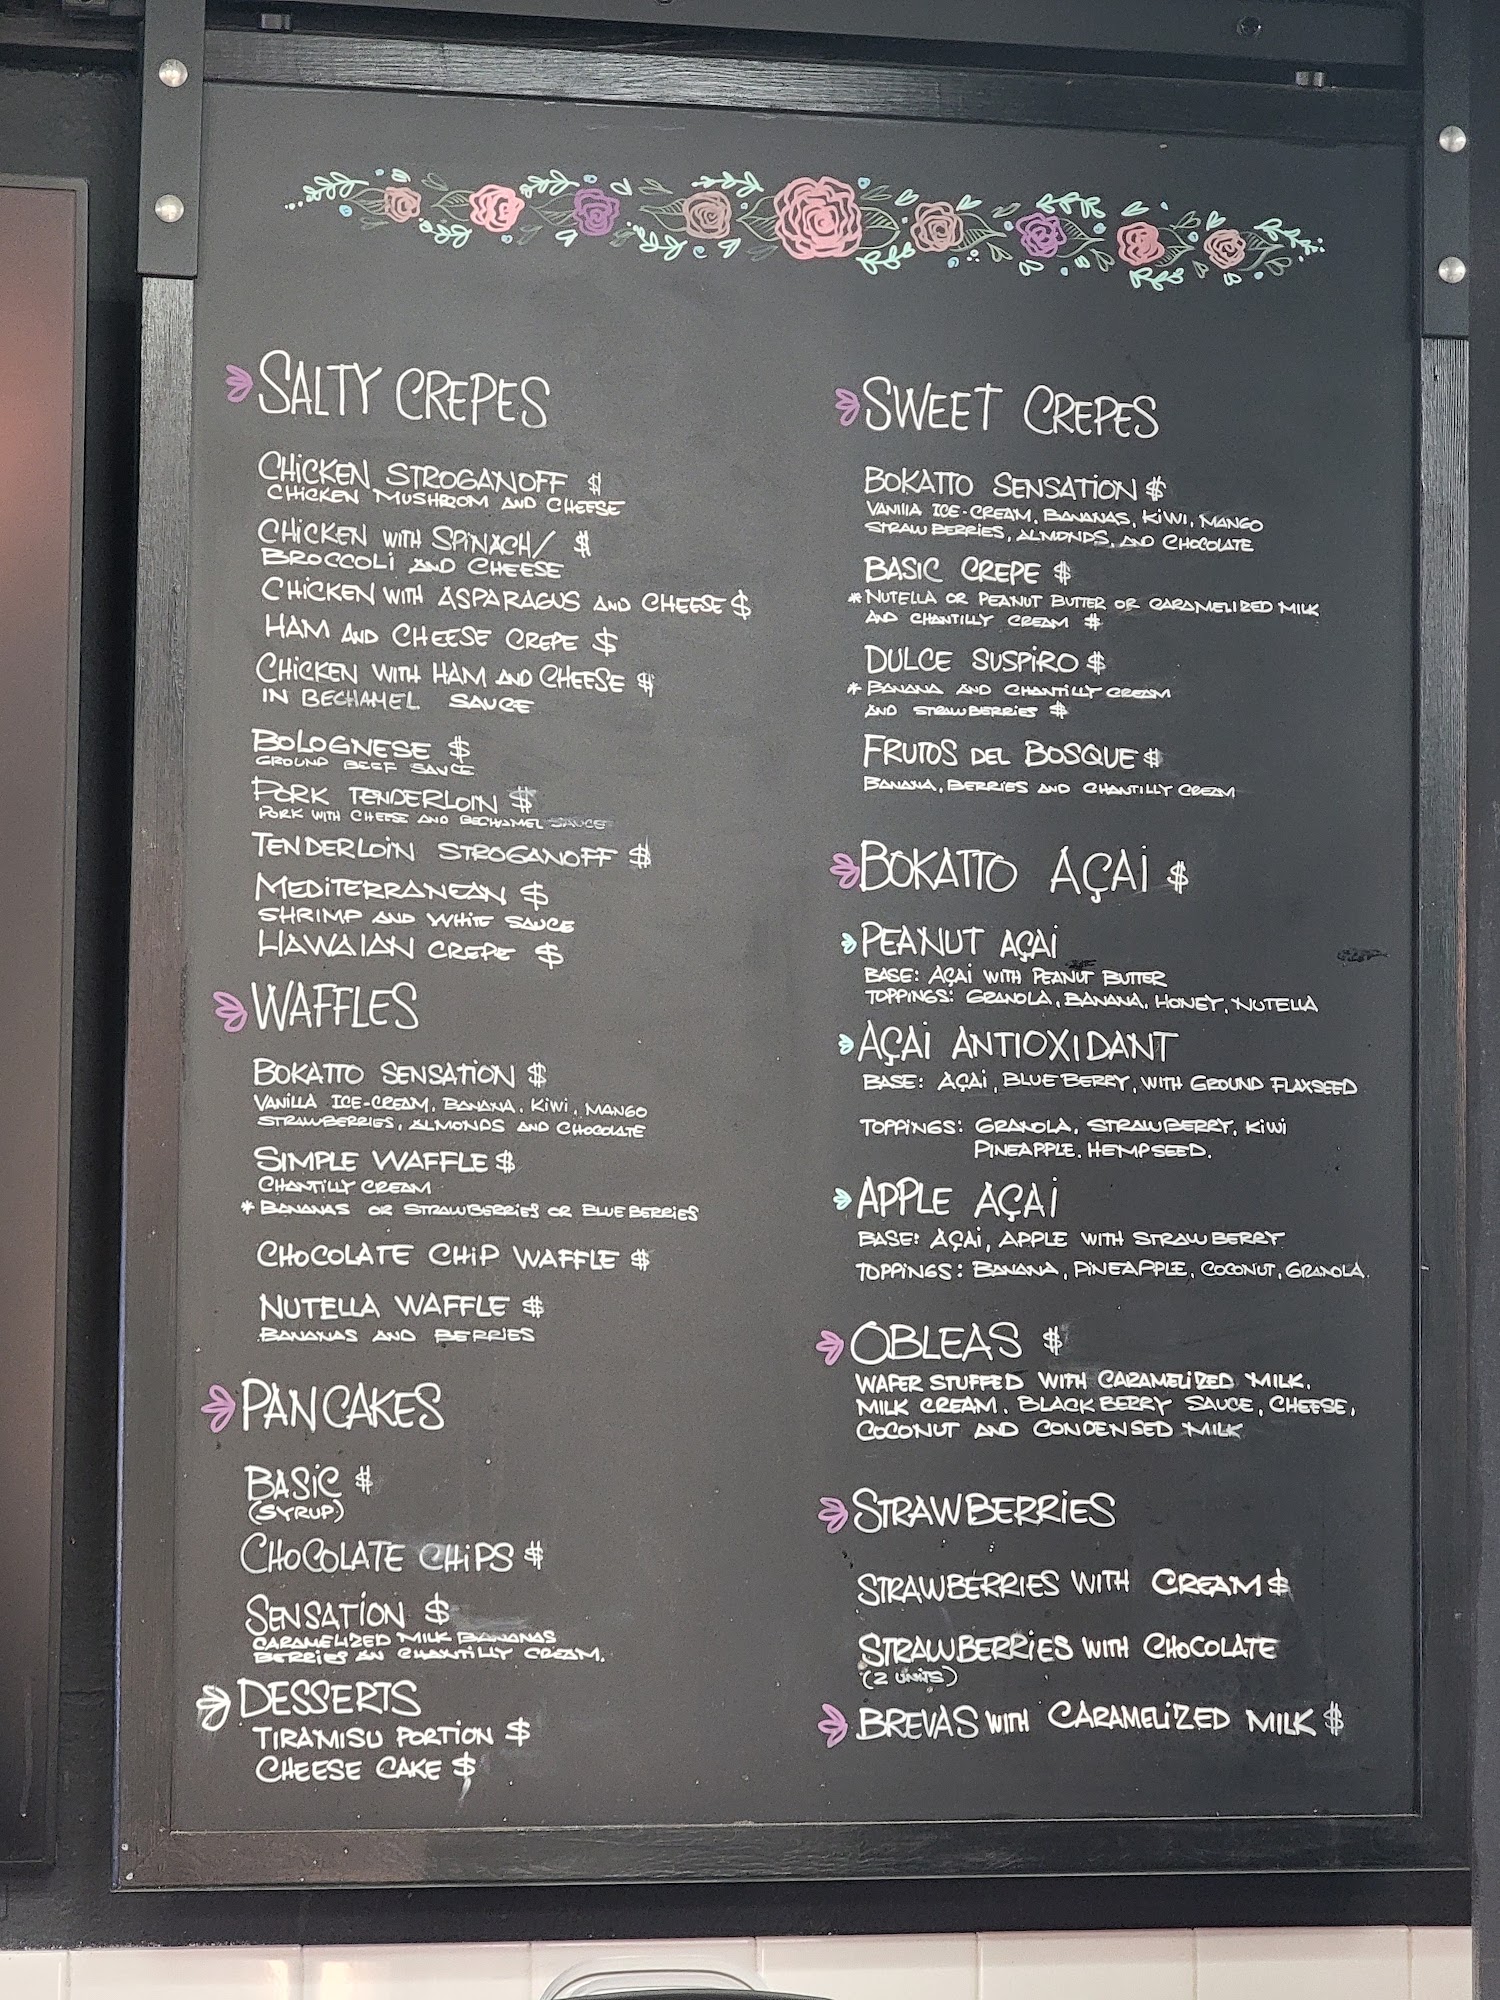 SALTY CREPES
CHICKEN STROGANOFF $
CHICKEN MUSHROOM AND CHEESE
CHICKEN WITH SPINACH/ $
BROCCOLI AND CHEESE
CHICKEN WITH ASPARAGUS AND CHEESE $
HAM AND CHEESE CREPE $
CHICKEN WITH HAM AND CHEESE $
IN BECHAMEL SAUCE
BOLOGNESE $
GROUND BEEF SAUCE
PORK TENDERLOIN $
PORK WITH CHEESE AND BECHAMEL SAUCE
TENDERLOIN STROGANOFF $
MEDITERRANEAN $
SHRIMP AND WHITE SAUCE
HAWAIAN CREPE $
WAFFLES
BOKATTO SENSATION $
VANILLA ICE-CREAM, BANANA, KIWI, MANGO
STRAWBERRIES, ALMONDS AND CHOCOLATE
SIMPLE WAFFLE $
CHANTILLY CREAM
* BANANAS OR STRAWBERRIES OR BLUEBERRIES
CHOCOLATE CHIP WAFFLE $
NUTELLA WAFFLE $
BANANAS AND BERRIES
PANCAKES
BASIC $
(SYRUP)
CHOCOLATE CHIPS $
SENSATION $
CARAMELIZED MILK BANANAS
BERRIES AN CHANTILLY CREAM.
DESSERTS
TIRAMISU PORTION $
CHEESE CAKE $
SWEET CREPES
BOKATTO SENSATION $
VANILLA ICE-CREAM, BANANAS, KIWI, MANGO
STRAWBERRIES, ALMONDS, AND CHOCOLATE
BASIC CREPE $
* NUTELLA OR PEANUT BUTTER OR CARAMELIZED MILK
AND CHANTILLY CREAM $
DULCE SUSPIRO $
* BANANA AND CHANTILLY CREAM
AND STRAWBERRIES $
FRUTOS DEL BOSQUE $
BANANA, BERRIES AND CHANTILLY CREAM
BOKATTO AÇAI $
PEANUT AÇAI
BASE: AÇAI WITH PEANUT BUTTER
TOPPINGS: GRANOLA, BANANA, HONEY, NUTELLA
AÇAI ANTIOXIDANT
BASE: AÇAI, BLUEBERRY, WITH GROUND FLAXSEED
TOPPINGS: GRANOLA, STRAWBERRY, KIWI
PINEAPPLE, HEMPSEED.
APPLE AÇAI
BASE: AÇAI, APPLE WITH STRAWBERRY
TOPPINGS: BANANA, PINEAPPLE, COCONUT, GRANOLA.
OBLEAS $
WAFER STUFFED WITH CARAMELIZED MILK,
MILK CREAM, BLACKBERRY SAUCE, CHEESE,
COCONUT AND CONDENSED MILK
STRAWBERRIES
STRAWBERRIES WITH CREAM $
STRAWBERRIES WITH CHOCOLATE
(2 UNITS)
BREVAS WITH CARAMELIZED MILK $